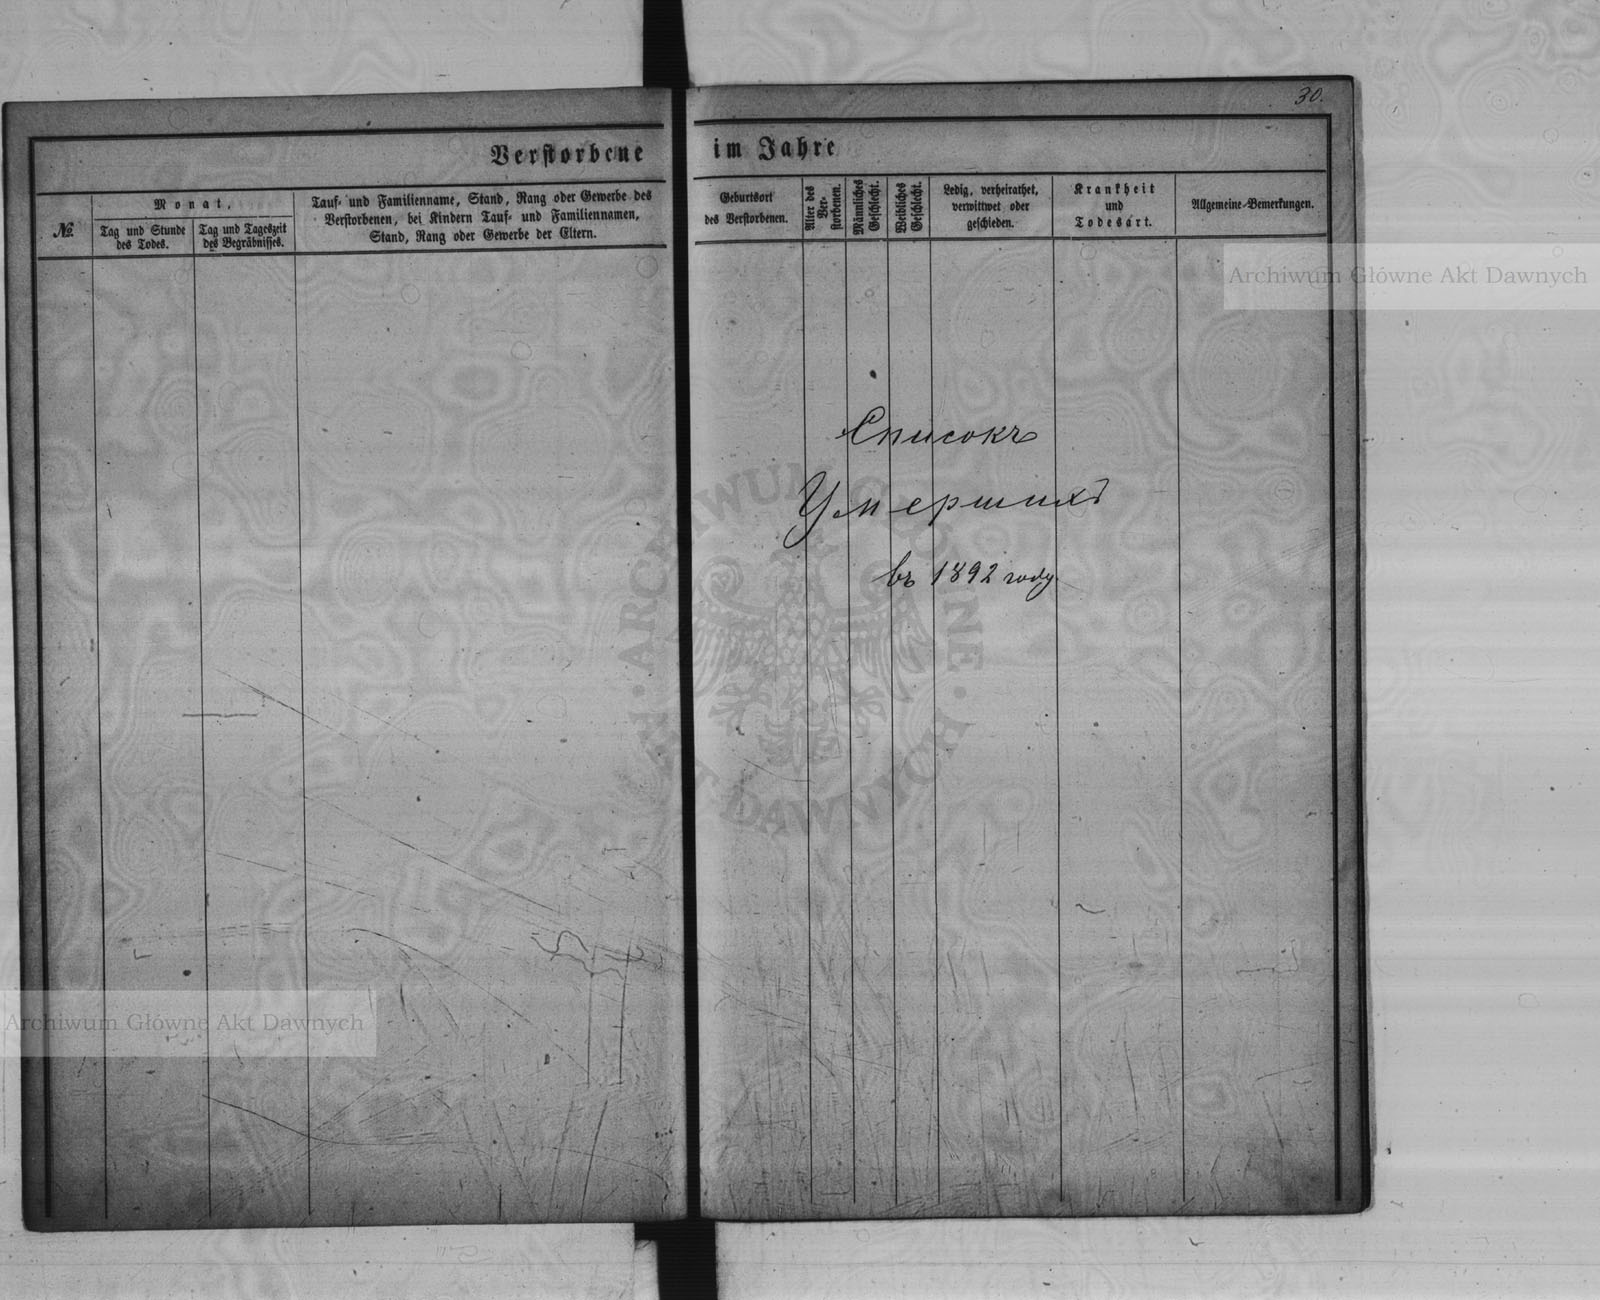 30.
Verstorbene im Jahre
№
Monat,
Tag und Stunde
des Todes.
Tag und Tageszeit
des Begräbnisses.
Tauf- und Familienname, Stand, Rang oder Gewerbe des
Verstorbenen, bei Kindern Tauf- und Familiennamen,
Stand, Rang oder Gewerbe der Eltern.
Geburtsort
des Verstorbenen.
Alter des
Ver-
storbenen.
Männliches
Geschlecht.
Weibliches
Geschlecht.
Ledig, verheirathet,
verwittwet oder
geschieden.
Krankheit
und
Todesart.
Allgemeine-Bemerkungen.
Archiwum Główne Akt Dawnych
Списокъ
Умершихъ
въ 1892 году.
ARCHIWUM GŁÓWNE
AKT DAWNYCH
Archiwum Główne Akt Dawnych